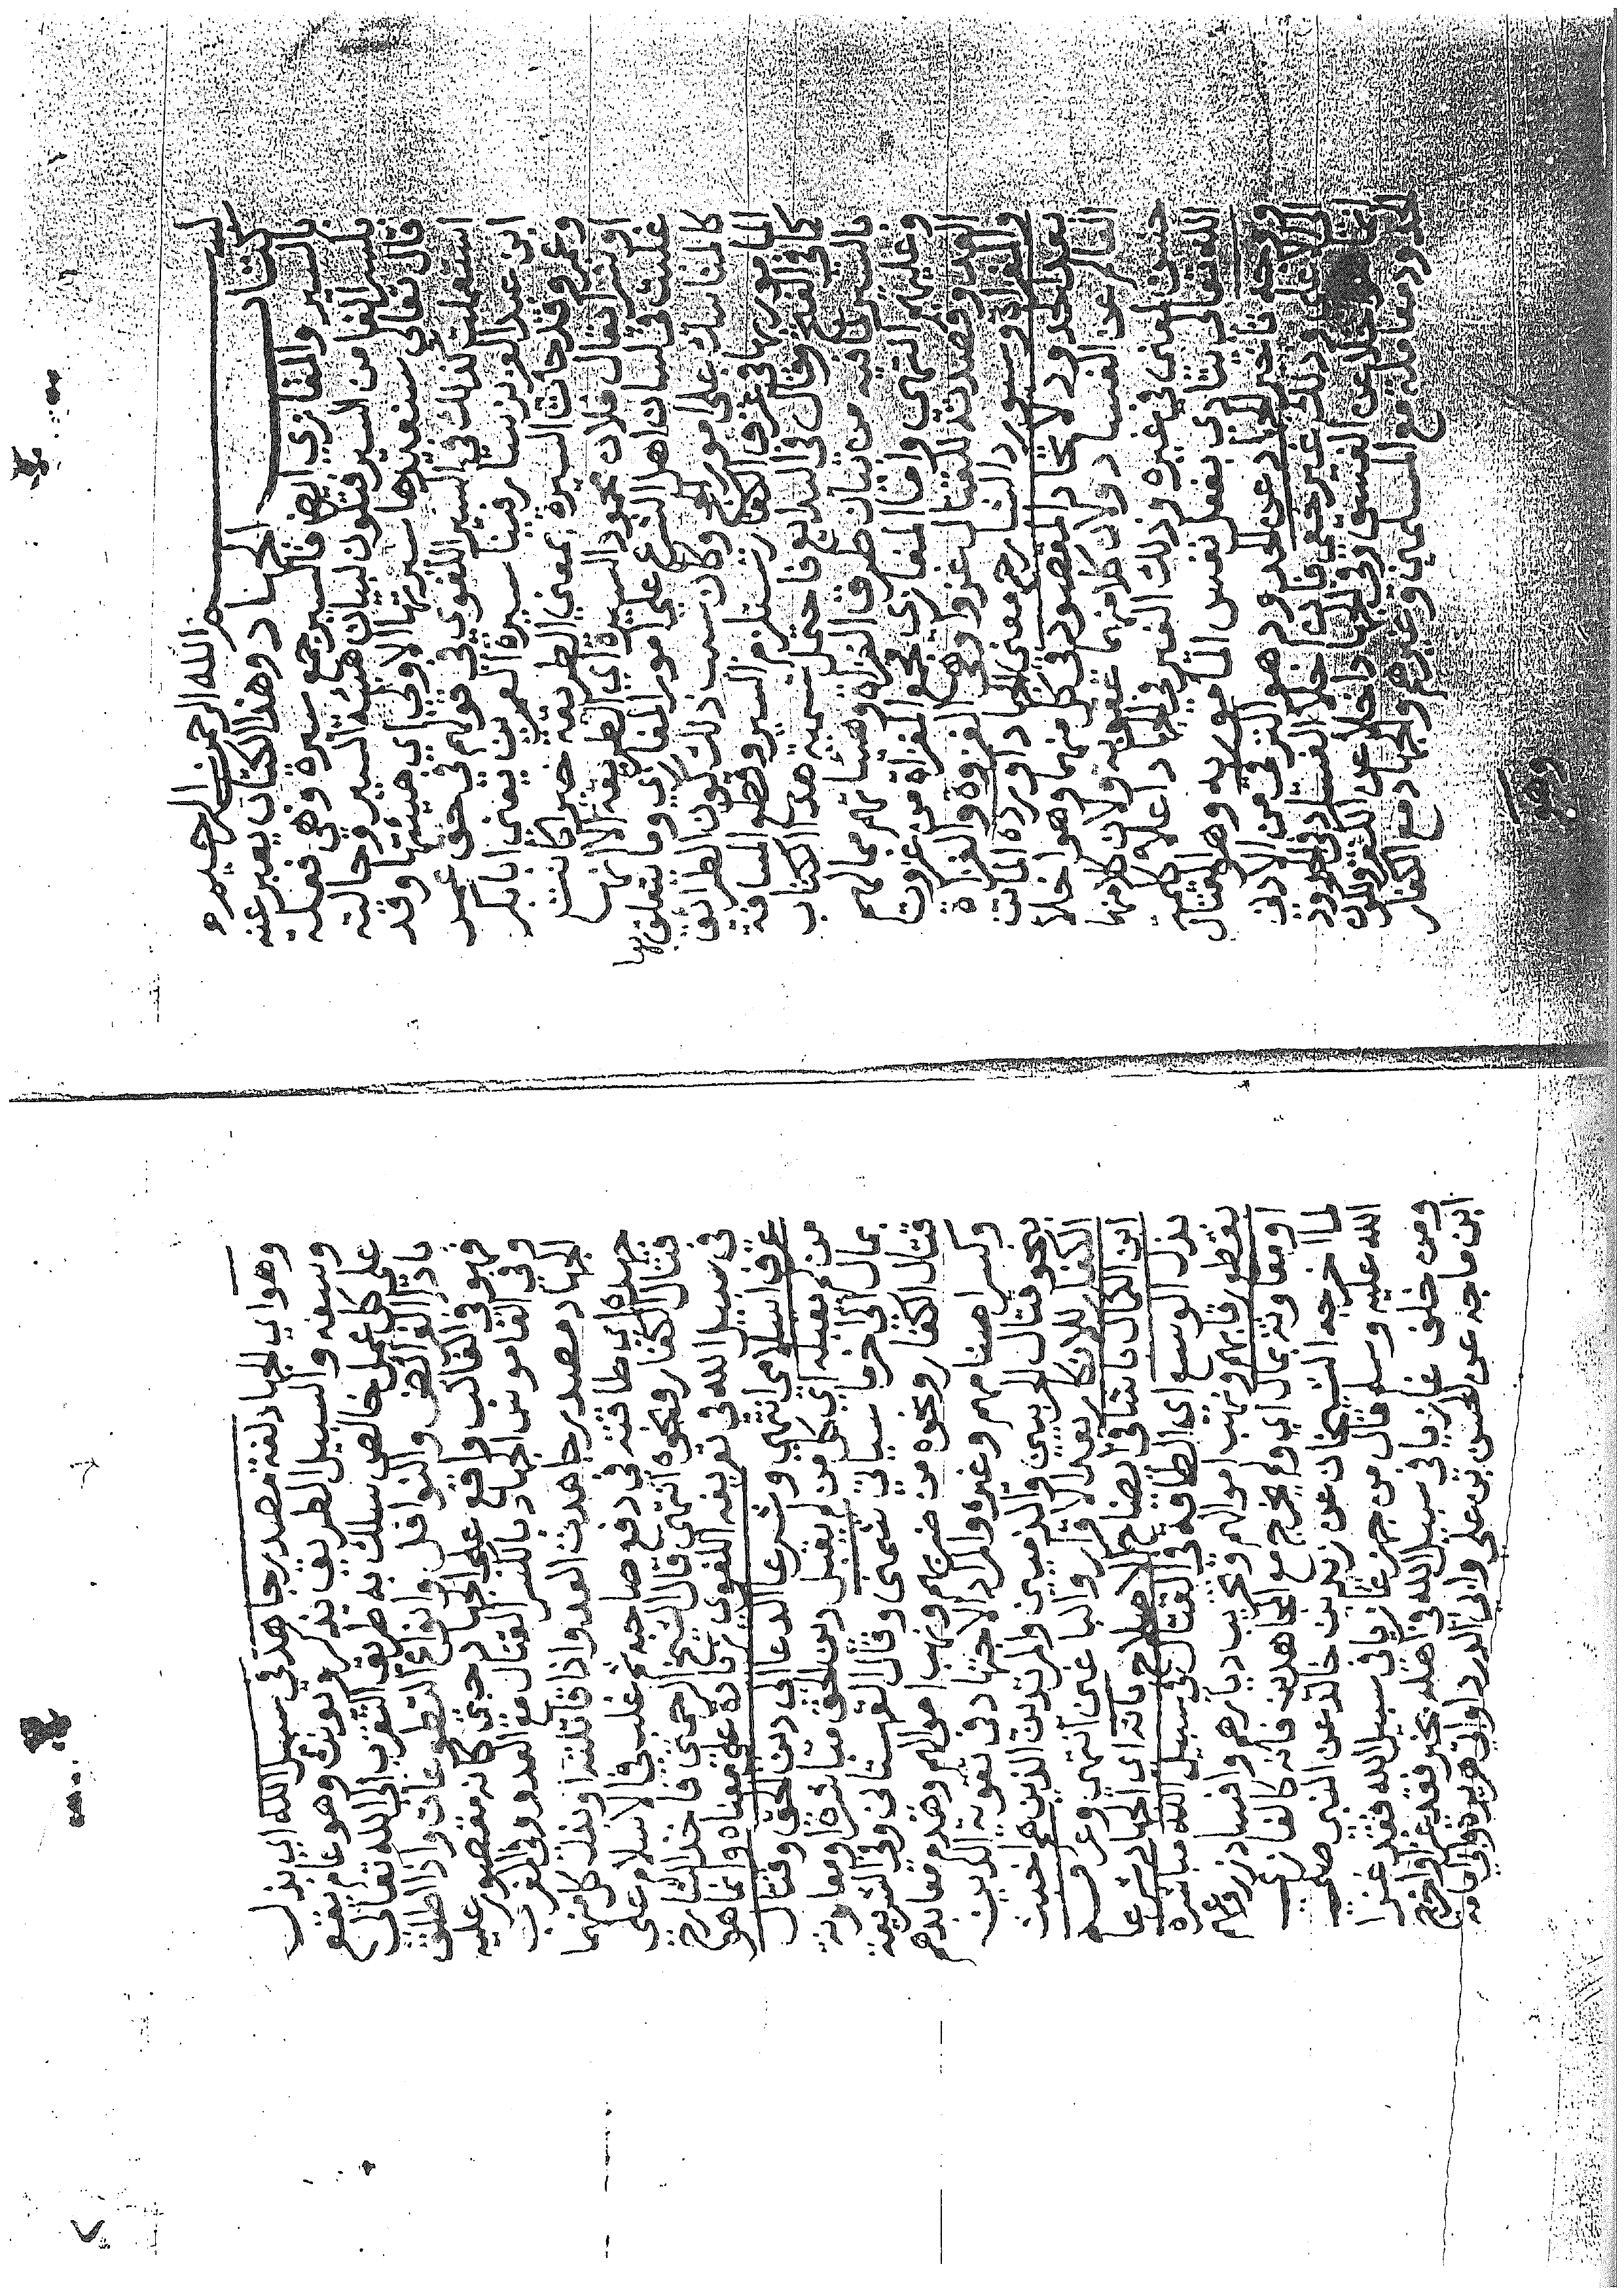 بسم الله الرحمن الرحيم
كتاب الجهاد وهذا الكتاب يعبر عنه
بالسير والمغازي ايضا فالسير جمع سيرة وهي فعلة
بكسر الفا من السير فتكون لبيان هيئة السير وحالته
قال تعالى سنعيدها سيرتها الاولى اي هيئتها وقد
استعملت كذلك في السير المعنوي في قولهم في حق عمر
ابن عبد العزيز سار فينا سيرة العمرين يعني ابا بكر
وعمر وقد جات السيرة بمعنى الطريقة خيرا كانت
او شرا يقال فلان محمود السيرة اي الطريقة الا انها
غلبت في لسان اهل الشرع على امور المغازي وما يتعلق بها
كالمناسك على امور الحج وكان سبب ذلك كون الطرائق
المامور بها في غزو الكفار تستلزم السير وقطع المسافة
كما في الفتح وقال في البدايع فاحتمل تسمية هذا الكتاب
بالسير لما فيه من بيان طرق الغزاة وهيئاتهم مما لهم
وعليهم انتهى واما المغازي جمع المغزاة من غزوت
العدو قصدته للقتال غزوا وهي الغزوة والغزاة
والمغزاة وسيورد الشارح معنى الجهاد اورده المات
بعد الحدود لاتحاد المقصود في كل منهما وهو اخلا
العالم عن الفساد ولان كلا منهما عقوبة ولان كلا منهما
حسن لمعنى في غيره وذلك الغير في الجهاد اعلا كلمة
الله تعالى يتادى بفعل نفس المامور به وهو القتال
ووجه تاخير الجهاد عن الحدود هو الترقي من الادنى
الى الاعلى وذلك غير خفي فان اخلا الفساد في الحدود
انما هو اخلا عن الفسق وفي الجهاد اخلا عن الكفر ولان
الحدود معاملة مع المسلمين وغيرهم والجهاد مع الكفار
وهو
وهو اي الجهاد لغة مصدر جاهد في سبيل الله اي بذل
وسعه والسبيل الطريق يذكر ويونث وهو عام يقع
على كل عمل خالص سلك به طريق التقرب الى الله تعالى
بادا الفرائض والنوافل وانواع التطوعات واذا اطلق
فهو في الغالب واقع على الجهاد حتى كانه مقصور عليه
وفي القاموس الجهاد بالكسر القتال مع العدو وفي المغرب
الجهاد مصدر جاهدت العدو اذا قاتلته او بذل كل منهما
جهده اي طاقته في دفع صاحبه ثم غلب في الاسلام على
قتال الكفار ونحوه انتهى قال الشيخ الرحمتي فاخذ الشارح
في سبيل الله في تعريفه اللغوي زيادة على معناه وانما هو
عرف اسلامي انتهى وشرعا الدعا الى دين الحق وقتال
من لم يقبله اي كل من لم يقبل دين الحق مباشرة او معاونة
بمال الى اخر ما سياتي شمني وقال القهستاني وفي الشريعة
قتال الكفار ونحوه من ضربهم ونهب اموالهم وهدم معابدهم
وكسر اصنامهم وغيرها والمراد الاجتهاد في تقوية الدين
بنحو قتال الحربيين والذميين والمرتدين الذين هم اخبث
الكفار للانكار بعد الاقرار والباغين انتهى وعرفه
ابن الكمال باشا في ايضاح الاصلاح بانه اي الجهاد شرعا
بذل الوسع اي الطاقة في القتال في سبيل الله مباشرة
بقطع رقابهم ونهب اموالهم وتخريب ديارهم وافساد زروعهم
او معاونة بمال اي وان لم يخرج مع المجاهدين فانه كالغازي
لما اخرجه الشيخان عن زيد بن خالد عن النبي صلى
الله عليه وسلم قال من جهز غازيا في سبيل الله فقد غزا
ومن خلف غازيا في سبيل الله في اهله بخير فقد غزا واخرج
ابن ماجه عن الحسن بن علي وابي الدردا وابي هريرة وابي امامة